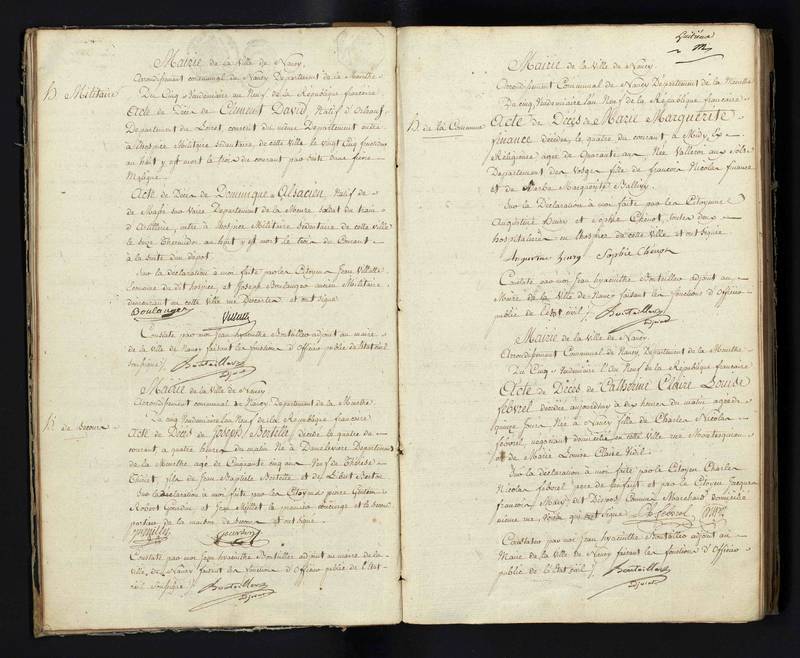 Mairie de la Ville de Nancy,
Arrondissement communal de Nancy Département de la Meurthe
Du Cinq Vendemiaire an Neuf de la République française
H. Militaire
Acte de Décès de Clément David Natif d'Orléans
Département du Loiret, conscrit du même Département entré
à l'hospice Militaire Sédentaire de cette ville le vingt Cinq fructidor
an huit y est mort le trois du courant par suite d'une fièvre
Acte de Décès de Dominique Alsacien, Natif de
Département de la Meuse soldat du train
d'Artillerie, entré à l'hospice Militaire Sédentaire de cette ville
le seize Thermidor an huit y est mort le trois du Courant
à la suite d'un dépôt
Sur la déclaration à moi faite par les Citoyens Jean Villatte
Econome du dit hospice, et Joseph Boulanger ancien Militaire
demeurant en cette ville rue Descartes et ont signé
Boulanger
Villatte
Constaté par moi Jean hyacinthe Bontoillier adjoint au maire
de la ville de Nancy faisant les fonctions d'Officier public de l'état civil
soussigné
Adjoint
Mairie de la Ville de Nancy
Arrondissement communal de Nancy Département de la Meurthe
Le cinq Vendemiaire an Neuf de la République française
H. de Secours
Acte de Décès de Joseph Bertille décédé le quatre du
courant à quatre heures du matin Né à Dameleviere Département
de la Meurthe agé de Cinquante cinq ans Veuf de Thérèse
fils de Jean Baptiste
Sur la déclaration à moi faite par les Citoyens pierre
Robert Gourdin et Jean Millet le premier concierge et le second
portier de la maison de Secours et ont signé
Constaté par moi Jean hyacinthe Bontoillier adjoint au maire de la
ville de Nancy faisant les fonctions d'Officier public de l'état
civil soussigné
Adjoint
Mairie de la Ville de Nancy
Arrondissement Communal de Nancy Département de la Meurthe
Du cinq Vendemiaire l'an Neuf de la République française
H. de la Commune
Acte de Décès de Marie Marguerite
finance décédée le quatre du courant à Midy
Religieuse agée de quarante ans Née
Département des Vosges fille de françois Nicolas finance
et de Barbe Marguerite
Sur la Déclaration à moi faite par les Citoyennes
Augustine Henry et Sophie Chenot, toutes deux
hospitalières en l'hospice de cette ville et ont signées
Augustine henry Sophie Chenot
Constaté par moi Jean hyacinthe Bontoillier adjoint au
Maire de la ville de Nancy faisant les fonctions d'Officier
public de l'état civil
Adjoint
Mairie de la Ville de Nancy.
Arrondissement Communal de Nancy Département de la Meurthe
Du Cinq Vendemiaire l'An Neuf de la République française
Acte de Décès de Catherine Claire Louise
febvrel décédée aujourd'hui à dix heures du matin agée de
quinze jours Née à Nancy fille de Charles Nicolas
febvrel, négociant domicilié en cette ville rue Montesquieu
et de Marie Louise Claire
Sur la déclaration à moi faite par le Citoyen Charles
Nicolas febvrel père de l'enfant et par le Citoyen
françois
Constaté par moi Jean hyacinthe Bontoillier adjoint au
Maire de la Ville de Nancy faisant les fonctions d'Officier
public de l'état civil
Adjoint